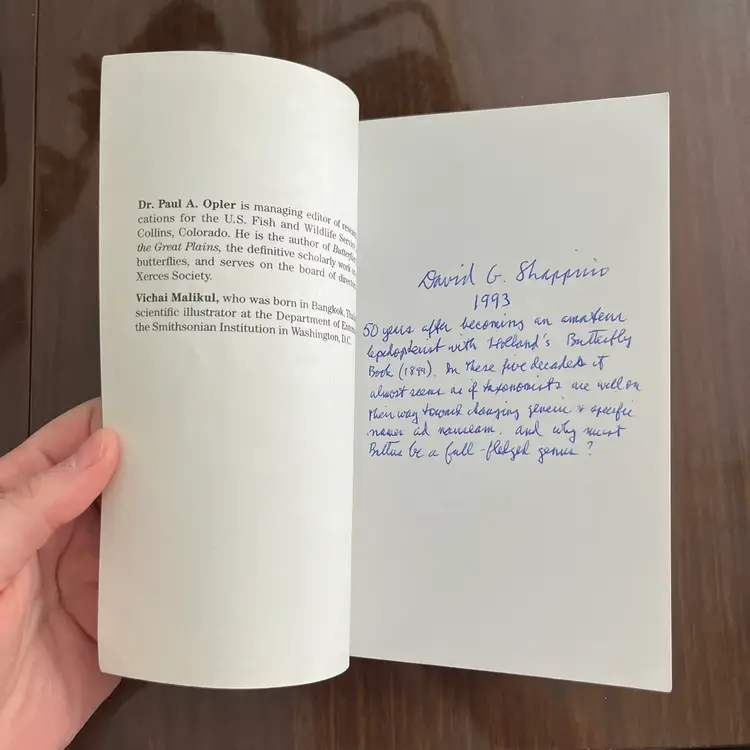 Dr. Paul A. Opler is managing editor of
cations for the U.S. Fish and Wildlife Service
Collins, Colorado. He is the author of
the Great Plains, the definitive scholarly work
butterflies, and serves on the board of
Xerces Society.
Vichai Malikul, who was born in Bangkok,
scientific illustrator at the Department of
the Smithsonian Institution in Washington, D.C.
David G.
1993
50 years after becoming an amateur
lepidopterist with Holland's Butterfly
Book (1899). In these five decades it
almost seems as if taxonomists are well on
their way toward changing generic & specific
names ad nauseam. and why must
Battus be a full-fledged genus?